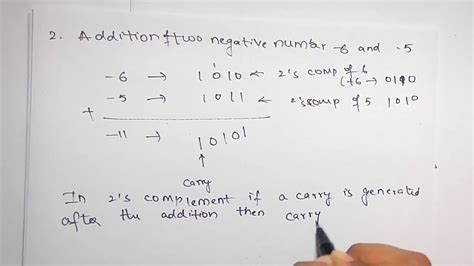 2. Addition of two negative number -6 and -5
1
-6 → 1010 ← 2's comp of 6
(+6 → 0110
-5 → 1011 ← 2's comp of 5 1010
+
-11 → 10101
↑
carry
In 2's complement if a carry is generated
after the addition then carry